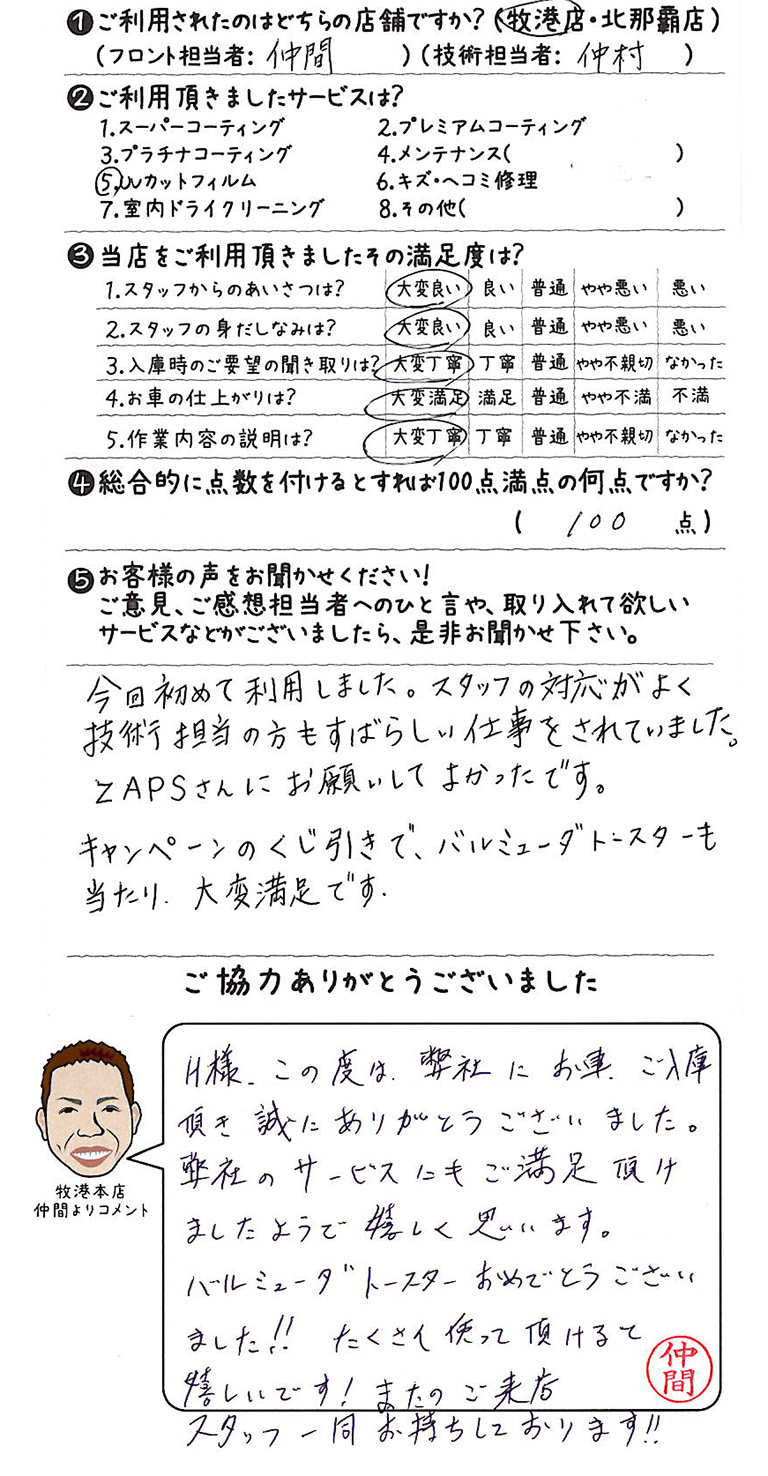 ❶ご利用されたのはどちらの店舗ですか?(牧港店・北那覇店)
(フロント担当者: 仲間 )(技術担当者: 仲村 )
❷ご利用頂きましたサービスは?
1.スーパーコーティング 2.プレミアムコーティング
3.プラチナコーティング 4.メンテナンス( )
5.UVカットフィルム 6.キズ・ヘコミ修理
7.室内ドライクリーニング 8.その他( )
❸当店をご利用頂きましたその満足度は?
1.スタッフからのあいさつは? 大変良い 良い 普通 やや悪い 悪い
2.スタッフの身だしなみは? 大変良い 良い 普通 やや悪い 悪い
3.入庫時のご要望の聞き取りは? 大変丁寧 丁寧 普通 やや不親切 なかった
4.お車の仕上がりは? 大変満足 満足 普通 やや不満 不満
5.作業内容の説明は? 大変丁寧 丁寧 普通 やや不親切 なかった
❹総合的に点数を付けるとすれば100点満点の何点ですか?
( 100 点)
❺お客様の声をお聞かせください!
ご意見、ご感想担当者へのひと言や、取り入れて欲しい
サービスなどがございましたら、是非お聞かせ下さい。
今回初めて利用しました。スタッフの対応がよく
技術担当の方もすばらしい仕事をされていました。
ZAPSさんにお願いしてよかったです。
キャンペーンのくじ引きで、バルミューダトースターも
当たり、大変満足です.
ご協力ありがとうございました
H様、この度は、弊社にお車、ご入庫
頂き誠にありがとうございました。
弊社のサービスにもご満足頂け
ましたようで嬉しく思います。
バルミューダトースターおめでとうござい
ました!! たくさん使って頂けると
嬉しいです! またのご来店
スタッフ一同お待ちしております!!
牧港本店
仲間よりコメント
仲間